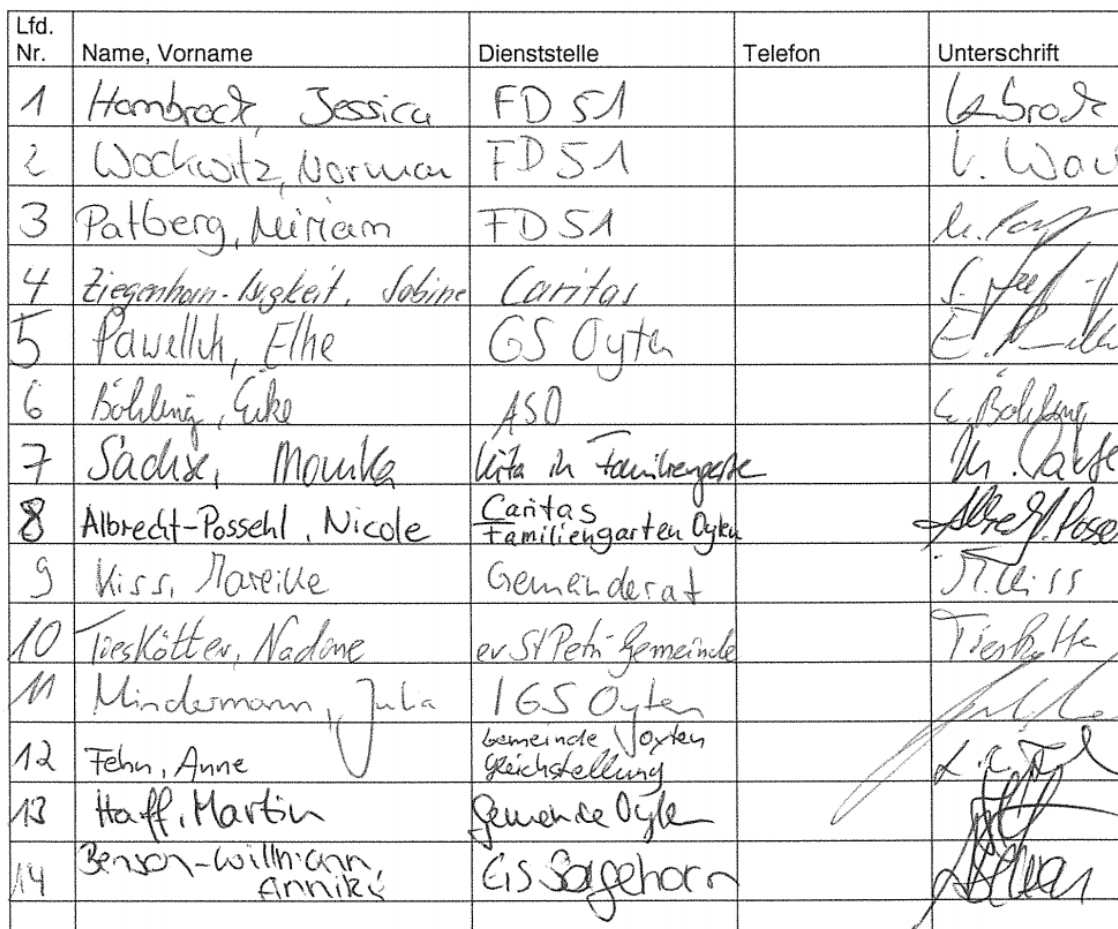 Lfd.
Nr. Name, Vorname Dienststelle Telefon Unterschrift
1 Hambrock, Jessica FD 51
2 Wockwitz, Norman FD 51
3 Patberg, Miriam FD 51
4 Ziegenhorn-Isigkeit, Sabine Caritas
5 Pawellek, Elke GS Oyten
6 Böhling, Eike ASD E. Böhling
7 Sachse, Monika Kita im
8 Albrecht-Possehl, Nicole Caritas
Familiengarten Oyten
9 Kiss, Mareike Gemeinderat M. Kiss
10 Tieskötter, Nadine ev St Petri Gemeinde Tieskötter
11 Mindermann, Julia IGS Oyten
12 Fehn, Anne Gemeinde Oyten
Gleichstellung
13 Haff, Martin Gemeinde Oyten
14 Benson-Willmann GS Sagehorn
Annika